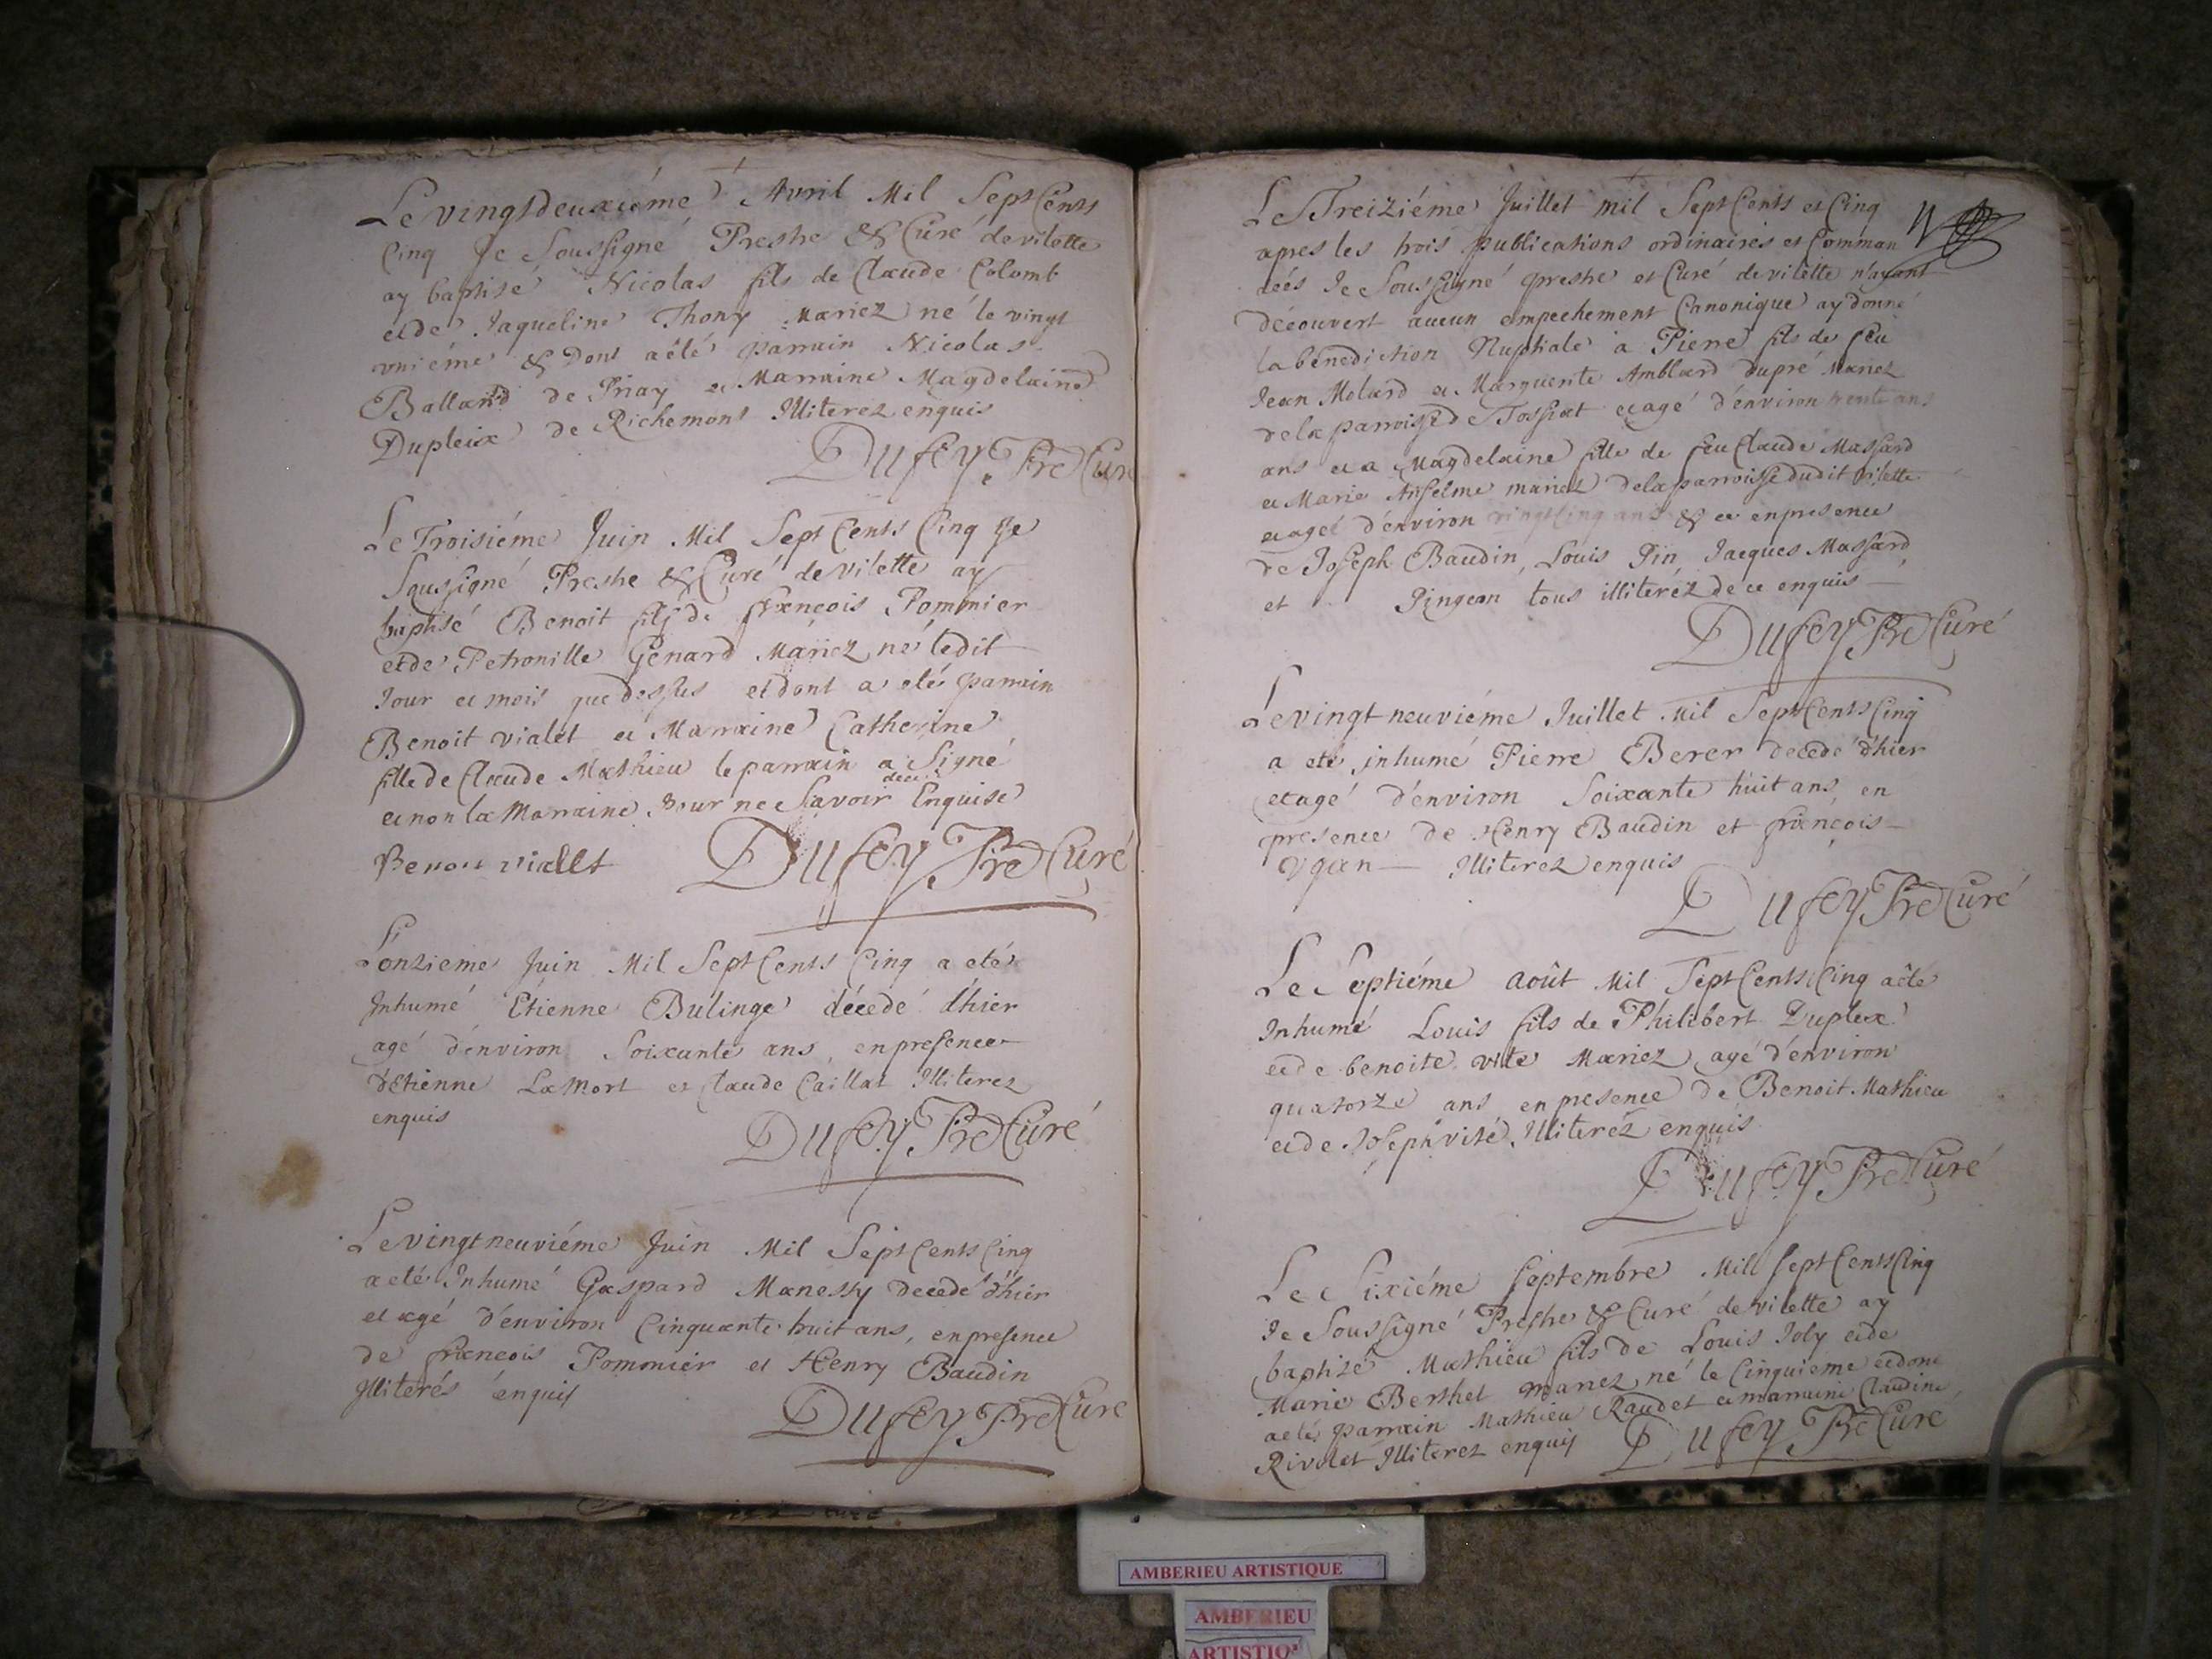 Le vingtdeuxiéme Avril Mil Sept Cents
Cinq Je Soussigné Prestre & Curé de vilette
ay baptisé Nicolas fils de Claude Colomb
et de Jaqueline Thony Mariez né le vingt
uniéme & Dont a été parrain Nicolas
Balland de Priay et Marraine Magdelaine
Dupleix de Richemont Illiterez enquis
Dufey Pre Curé
Le Troisiéme Juin Mil Sept Cents Cinq Je
Soussigné Prestre & Curé de vilette ay
baptisé Benoit fils de françois Pommier
et de Petronille Genard Mariez né ledit
Jour et mois que dessus et dont a eté parrain
Benoit vialet et Marraine Catherine
fille de Claude Mathieu le parrain a Signé
et non la Marraine pour ne Savoir de ce Enquise
Benoit viallet Dufey Pre Curé
L'onzieme Juin Mil Sept Cents Cinq a eté
Inhumé Etienne Bulinge décedé d'hier
agé d'environ Soixante ans, en presence
d'Etienne La Mort et Claude Caillat Illiterez
enquis
Dufey Pre Curé
Le vingt neuviéme Juin Mil Sept Cents Cinq
a eté Inhumé Gaspard Manessy decedé d'hier
et agé d'environ Cinquante huit ans, en presence
de françois Pommier et Henry Baudin
Illiterés enquis
Dufey Pre Curé
Le Treiziéme Juillet mil Sept Cents et Cinq
apres les trois publications ordinaires et Comman
dées Je Soussigné prestre et Curé de vilette n'ayant
découvert aucun empechement Canonique ay donné
la bénediction Nuptiale a Pierre fils de feu
Jean Molard et Marguerite Amblard dupré Mariez
de la parroisse de Tossiat et agé d'environ trente ans
ans et a Magdelaine fille de feu Claude Massard
et Marie Anselme mariez de la parroisse dudit Vilette
et agée d'environ vingt Cinq ans & ce en presence
de Joseph Baudin, Louis Pin, Jacques Massard,
et Pingeon tous illiteréz de ce enquis
Dufey Pre Curé
Le vingt neuviéme Juillet Mil Sept Cents Cinq
a eté inhumé Pierre Berer decedé d'hier
et agé d'environ Soixante huit ans, en
presence de Henry Baudin et françois
Illiterez enquis
Dufey Pre Curé
Le Septiéme Août Mil Sept Cents Cinq a été
Inhumé Louis fils de Philibert Dupleix
et de benoite vite Mariez agé d'environ
quatorze ans en presence de Benoit Mathieu
et de Joseph vité, Illiteréz enquis
Dufey Pre Curé
Le Sixiéme Septembre Mil Sept Cents Cinq
Je Soussigné Prestre & Curé de vilette ay
baptisé Mathieu fils de Louis Joly et de
Marie Berthet mariez né le Cinquiéme et dont
a eté parrain Mathieu Raudet et marraine Claudine
Rivolet Illiterez enquis Dufey Pre Curé
AMBERIEU ARTISTIQUE
AMBERIEU
ARTISTIQ